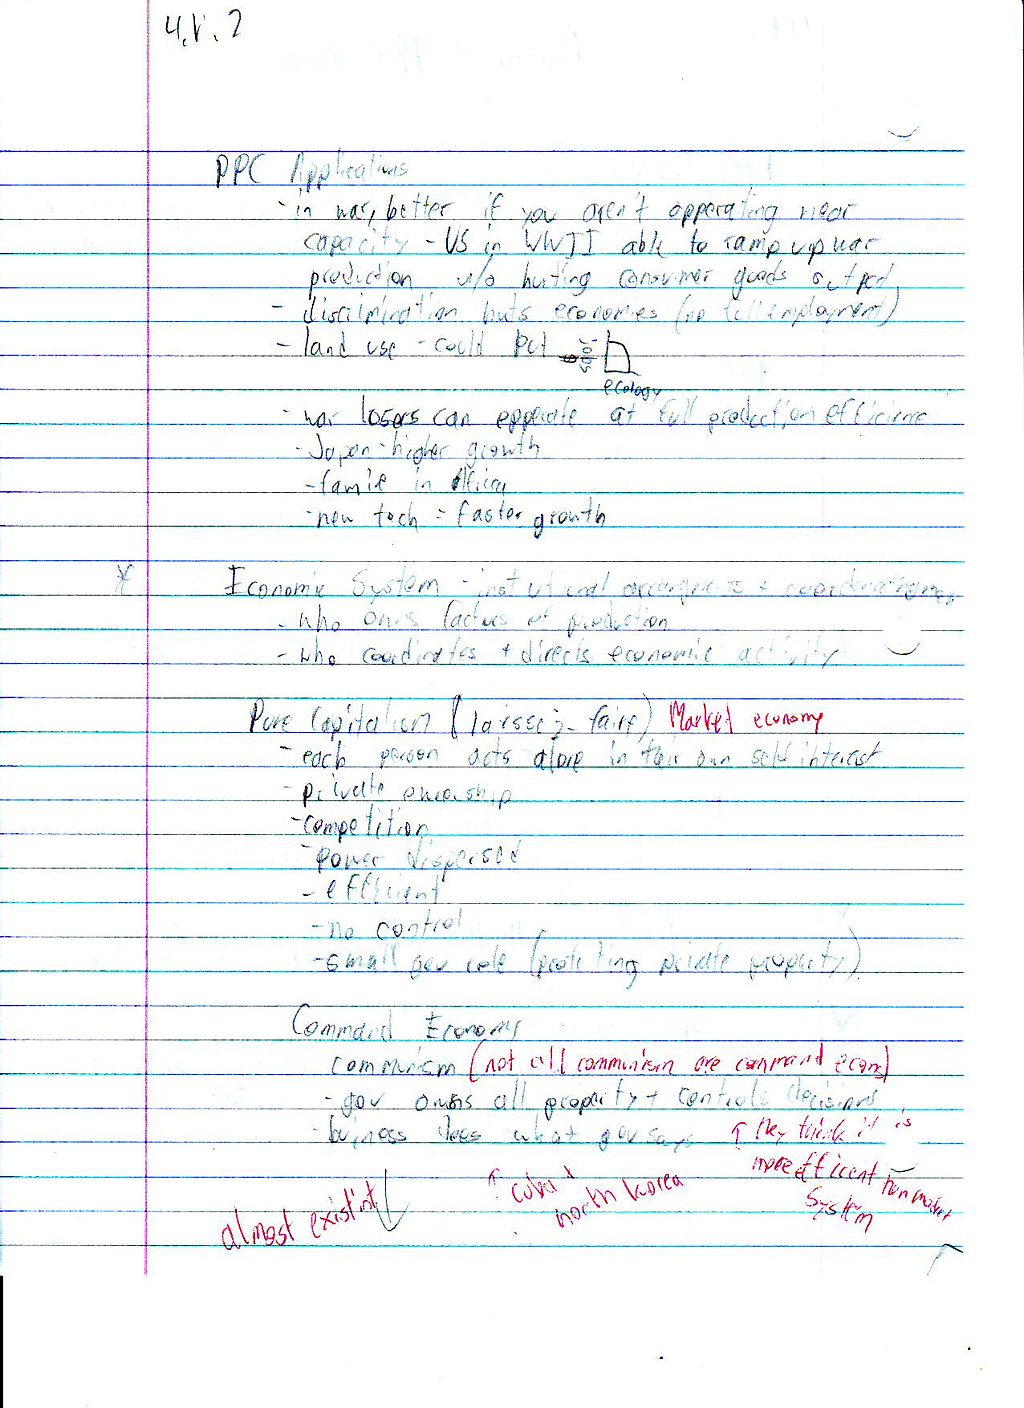 4.V.2
PPC Applications
- in war, better if you aren't opperating near
capacity - US in WWII able to ramp up war
production w/o hurting consumer goods output
- discrimination huts economies (no full employment)
- land use - could put
ecology
- war losers can epperate at full production efficience
- Japan - higher growth
- famie in Africa
- new tech = faster growth
* Economic System - institutional arrangments +
- who owns factors of production
- who coordinates + directs economic activity
Pure Capitalism (laissez-faire) Market economy
- each person acts alone in their own self interest
- private ownership
- competition
- power dispersed
- efficient
- no control
- small gov role (protecting private property)
Command Economy
communism (not all communism are command econs)
- gov owns all property + controls decisions
- business does what gov says ↑ they think it is
more efficient than market
system
↑ Cuba +
north korea
almost existint